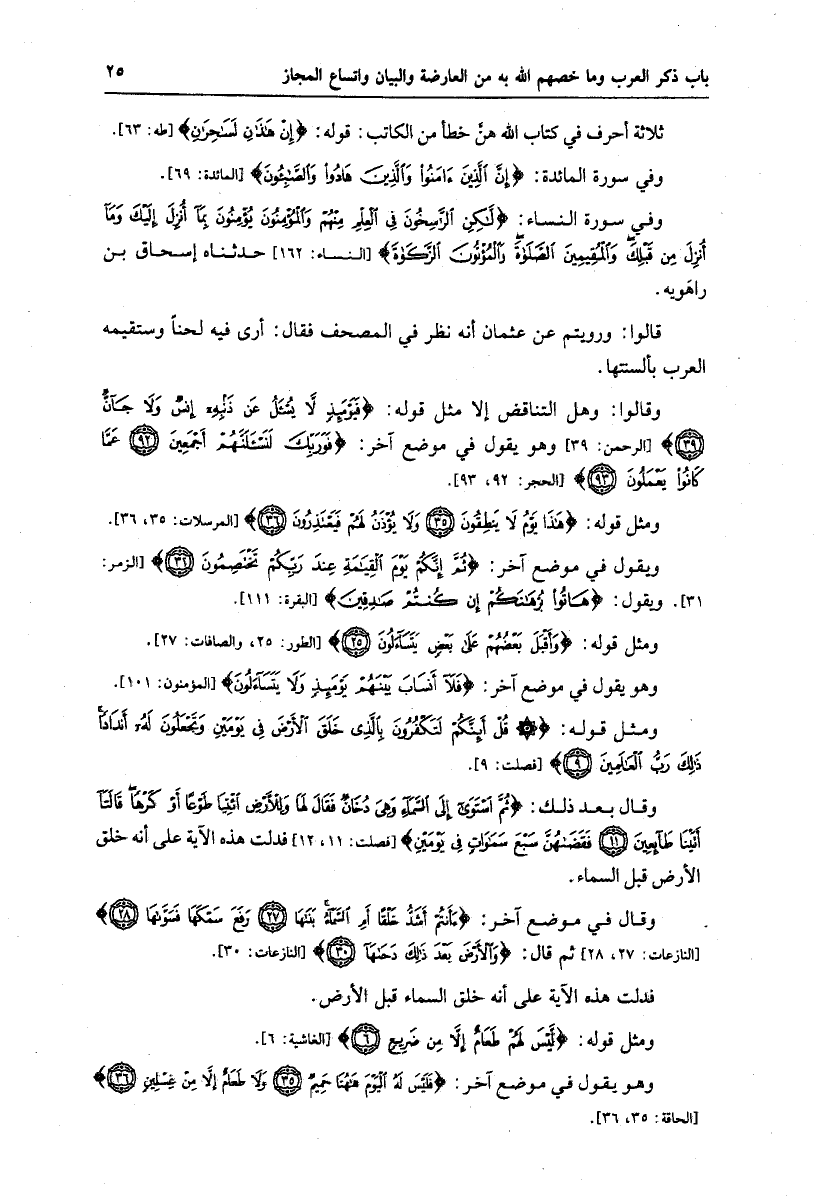 باب ذكر العرب وما خصهم الله به من العارضة والبيان واتساع المجاز ٢٥
ثلاثة أحرف في كتاب الله هنَّ خطأ من الكاتب: قوله: ﴿إِنْ هَٰذَٰنِ لَسَٰحِرَٰنِ﴾ [طه: ٦٣].
وفي سورة المائدة: ﴿إِنَّ ٱلَّذِينَ ءَامَنُوا۟ وَٱلَّذِينَ هَادُوا۟ وَٱلصَّٰبِـُٔونَ﴾ [المائدة: ٦٩].
وفي سورة النساء: ﴿لَّٰكِنِ ٱلرَّٰسِخُونَ فِى ٱلْعِلْمِ مِنْهُمْ وَٱلْمُؤْمِنُونَ يُؤْمِنُونَ بِمَآ أُنزِلَ إِلَيْكَ وَمَآ
أُنزِلَ مِن قَبْلِكَ ۚ وَٱلْمُقِيمِينَ ٱلصَّلَوٰةَ ۚ وَٱلْمُؤْتُونَ ٱلزَّكَوٰةَ﴾ [النساء: ١٦٢] حدثناه إسحاق بن
راهَويه.
قالوا: ورويتم عن عثمان أنه نظر في المصحف فقال: أرى فيه لحناً وستقيمه
العرب بألسنتها.
وقالوا: وهل التناقض إلا مثل قوله: ﴿فَيَوْمَئِذٍ لَّا يُسْـَٔلُ عَن ذَنۢبِهِۦٓ إِنسٌ وَلَا جَآنٌّ
﴿٣٩﴾﴾ [الرحمن: ٣٩] وهو يقول في موضع آخر: ﴿فَوَرَبِّكَ لَنَسْـَٔلَنَّهُمْ أَجْمَعِينَ ﴿٩٢﴾ عَمَّا
كَانُوا۟ يَعْمَلُونَ ﴿٩٣﴾﴾ [الحجر: ٩٢، ٩٣].
ومثل قوله: ﴿هَٰذَا يَوْمُ لَا يَنطِقُونَ ﴿٣٥﴾ وَلَا يُؤْذَنُ لَهُمْ فَيَعْتَذِرُونَ ﴿٣٦﴾﴾ [المرسلات: ٣٥، ٣٦].
ويقول في موضع آخر: ﴿ثُمَّ إِنَّكُمْ يَوْمَ ٱلْقِيَٰمَةِ عِندَ رَبِّكُمْ تَخْتَصِمُونَ ﴿٣١﴾﴾ [الزمر:
٣١]. ويقول: ﴿هَاتُوا۟ بُرْهَٰنَكُمْ إِن كُنتُمْ صَٰدِقِينَ﴾ [البقرة: ١١١].
ومثل قوله: ﴿وَأَقْبَلَ بَعْضُهُمْ عَلَىٰ بَعْضٍ يَتَسَآءَلُونَ ﴿٢٥﴾﴾ [الطور: ٢٥، والصافات: ٢٧].
وهو يقول في موضع آخر: ﴿فَلَآ أَنسَابَ بَيْنَهُمْ يَوْمَئِذٍ وَلَا يَتَسَآءَلُونَ﴾ [المؤمنون: ١٠١].
ومثل قوله: ﴿۞ قُلْ أَئِنَّكُمْ لَتَكْفُرُونَ بِٱلَّذِى خَلَقَ ٱلْأَرْضَ فِى يَوْمَيْنِ وَتَجْعَلُونَ لَهُۥٓ أَندَادًا ۚ
ذَٰلِكَ رَبُّ ٱلْعَٰلَمِينَ ﴿٩﴾﴾ [فصلت: ٩].
وقال بعد ذلك: ﴿ثُمَّ ٱسْتَوَىٰٓ إِلَى ٱلسَّمَآءِ وَهِىَ دُخَانٌ فَقَالَ لَهَا وَلِلْأَرْضِ ٱئْتِيَا طَوْعًا أَوْ كَرْهًا ۖ قَالَتَآ
أَتَيْنَا طَآئِعِينَ ﴿١١﴾ فَقَضَىٰهُنَّ سَبْعَ سَمَٰوَاتٍ فِى يَوْمَيْنِ﴾ [فصلت: ١١، ١٢] فدلت هذه الآية على أنه خلق
الأرض قبل السماء.
وقال في موضع آخر: ﴿ءَأَنتُمْ أَشَدُّ خَلْقًا أَمِ ٱلسَّمَآءُ ۚ بَنَىٰهَا ﴿٢٧﴾ رَفَعَ سَمْكَهَا فَسَوَّىٰهَا ﴿٢٨﴾﴾
[النازعات: ٢٧، ٢٨] ثم قال: ﴿وَٱلْأَرْضَ بَعْدَ ذَٰلِكَ دَحَىٰهَآ ﴿٣٠﴾﴾ [النازعات: ٣٠].
فدلت هذه الآية على أنه خلق السماء قبل الأرض.
ومثل قوله: ﴿لَّيْسَ لَهُمْ طَعَامٌ إِلَّا مِن ضَرِيعٍ ﴿٦﴾﴾ [الغاشية: ٦].
وهو يقول في موضع آخر: ﴿فَلَيْسَ لَهُ ٱلْيَوْمَ هَٰهُنَا حَمِيمٌ ﴿٣٥﴾ وَلَا طَعَامٌ إِلَّا مِنْ غِسْلِينٍ ﴿٣٦﴾﴾
[الحاقة: ٣٥، ٣٦].